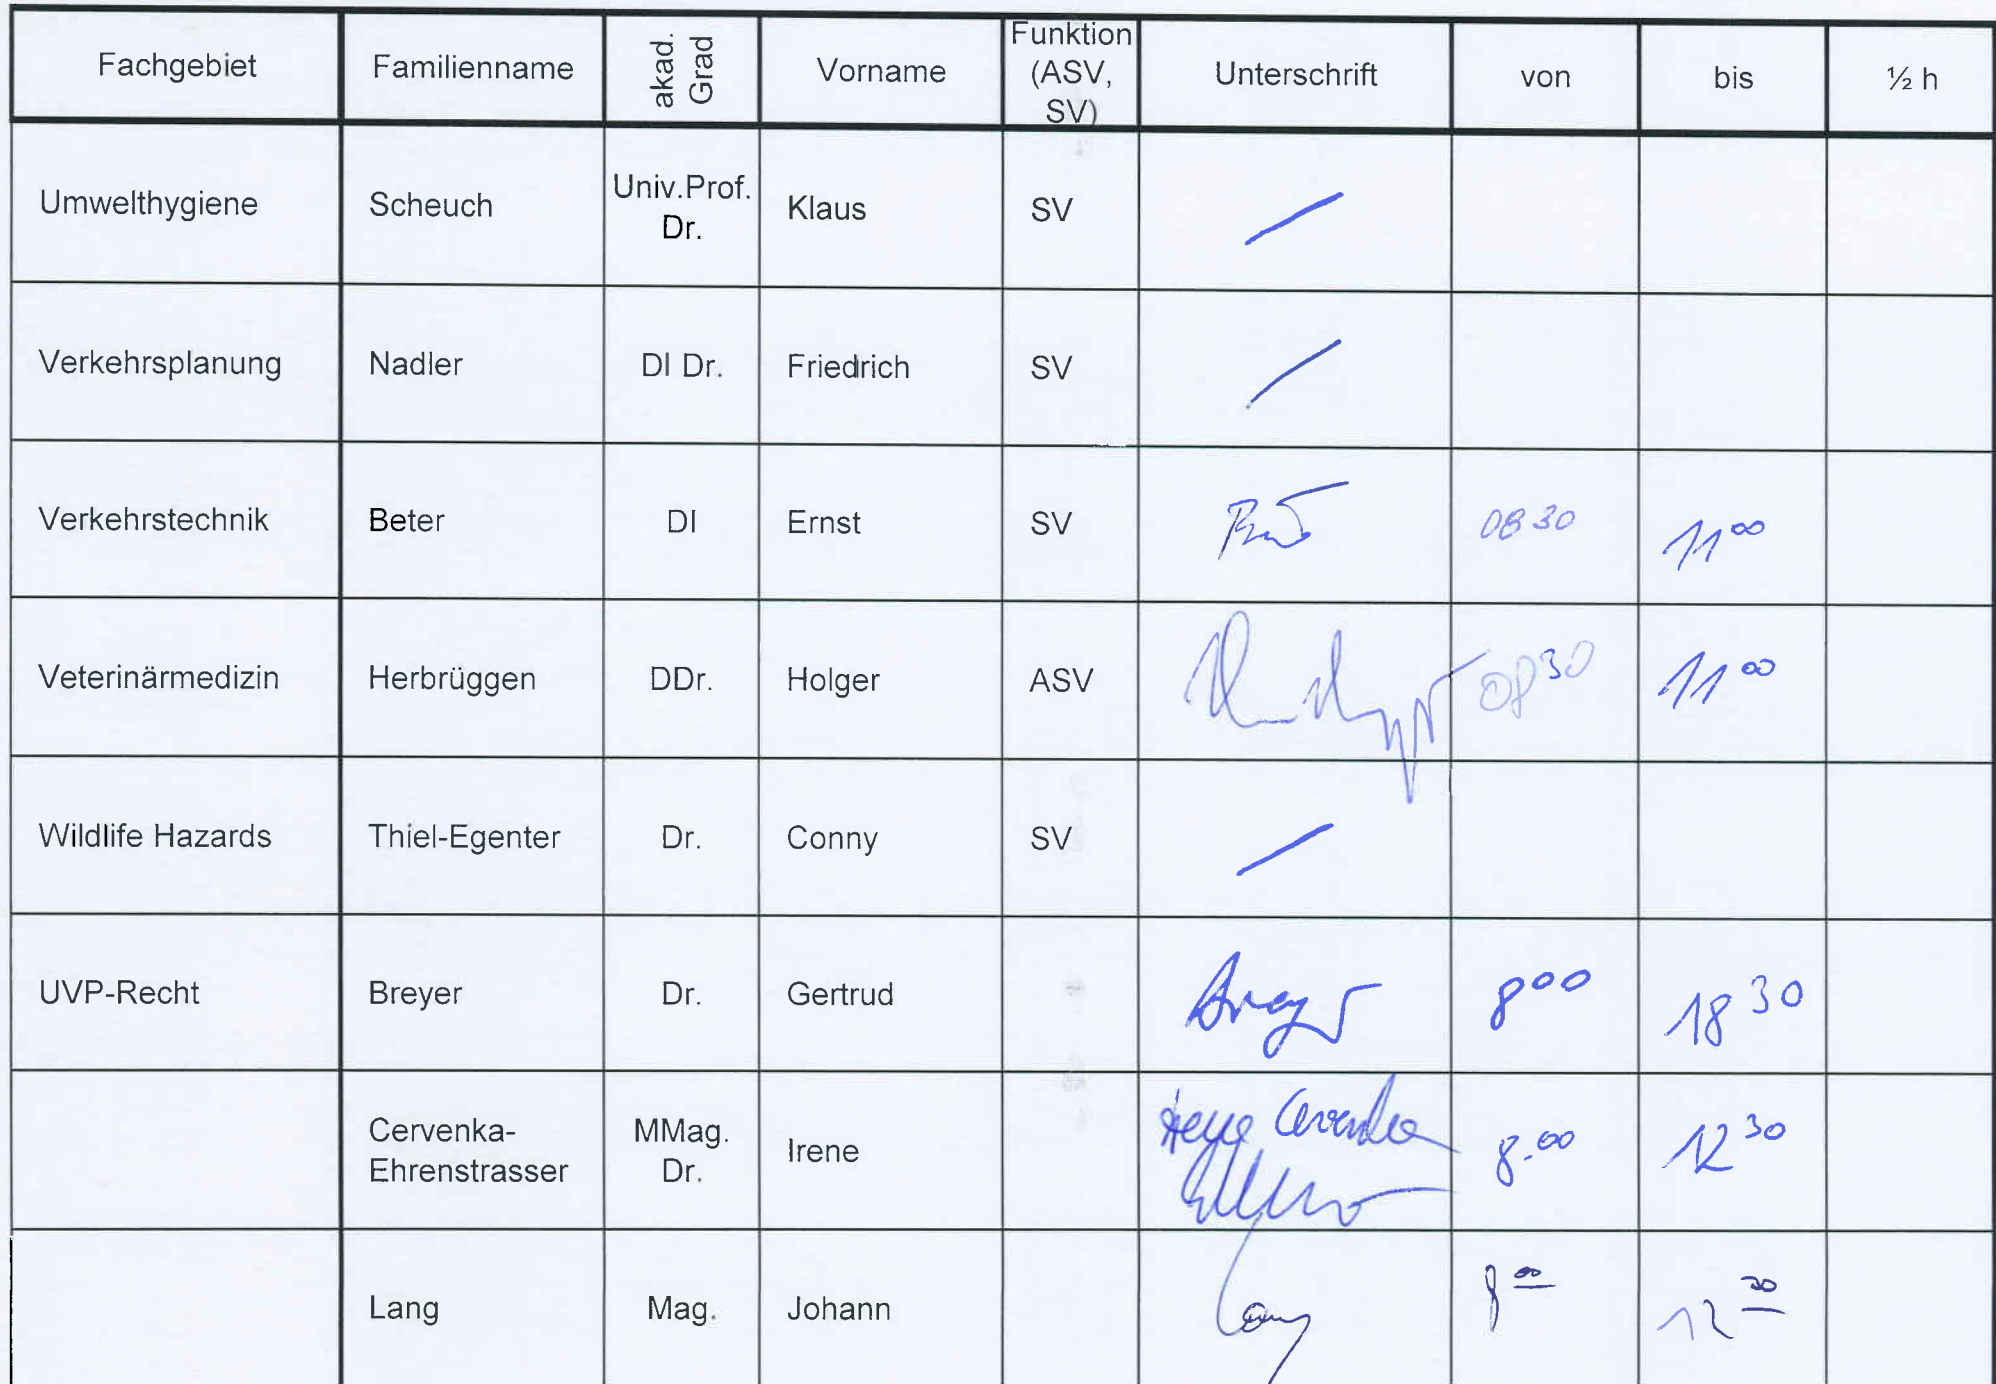 Fachgebiet Familienname akad. Grad Vorname Funktion (ASV, SV) Unterschrift von bis ½ h
Umwelthygiene Scheuch Univ.Prof. Dr. Klaus SV
Verkehrsplanung Nadler DI Dr. Friedrich SV
Verkehrstechnik Beter DI Ernst SV 08 30 11 00
Veterinärmedizin Herbrüggen DDr. Holger ASV 08 30 11 00
Wildlife Hazards Thiel-Egenter Dr. Conny SV
UVP-Recht Breyer Dr. Gertrud Breyer 8 00 18 30
Cervenka-Ehrenstrasser MMag. Dr. Irene Irene Cervenka 8.00 12 30
Lang Mag. Johann Lang 8 00 12